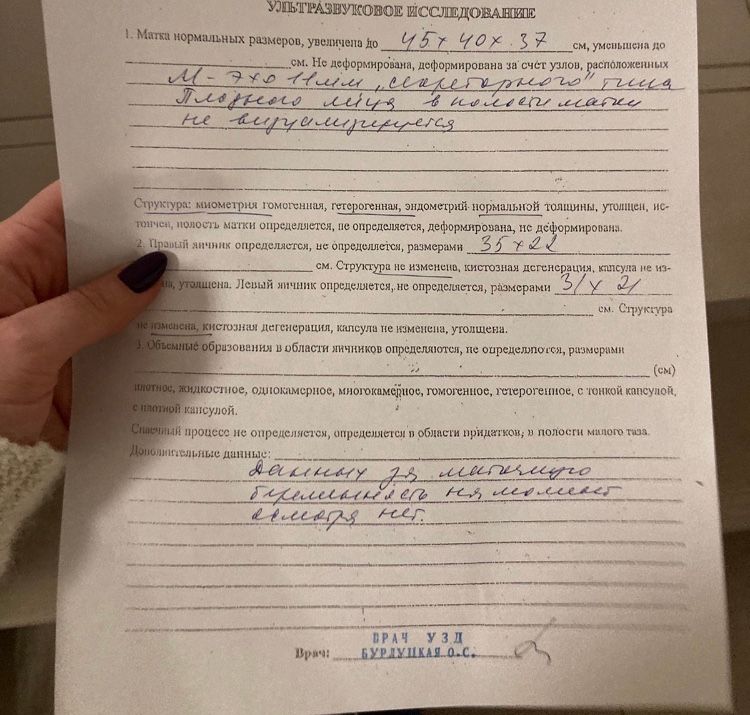 УЛЬТРАЗВУКОВОЕ ИССЛЕДОВАНИЕ
1. Матка нормальных размеров, увеличена до 45 х 40 х 37 см, уменьшена до
см. Не деформирована, деформирована за счёт узлов, расположенных
М-эхо 11мм „секреторного" типа
Плодного яйца в полости матки
не визуализируется
Структура: миометрия гомогенная, гетерогенная, эндометрий нормальной толщины, утолщен, ис-
тончен, полость матки определяется, не определяется, деформирована, не деформирована.
2. Правый яичник определяется, не определяется, размерами 35 х 22
см. Структура не изменена, кистозная дегенерация, капсула не из-
утолщена. Левый яичник определяется, не определяется, размерами 31 х 21
см. Структура
не изменена, кистозная дегенерация, капсула не изменена, утолщена.
3. Объемные образования в области яичников определяются, не определяются, размерами
(см)
плотное, жидкостное, однокамерное, многокамерное, гомогенное, гетерогенное, с тонкой капсулой,
с плотной капсулой.
Спаечный процесс не определяется, определяется в области придатков, в полости малого таза.
Дополнительные данные:
Данных за маточную
беременность на момент
осмотра нет.
ВРАЧ УЗД
Врач: БУРЛУЦКАЯ О.С.